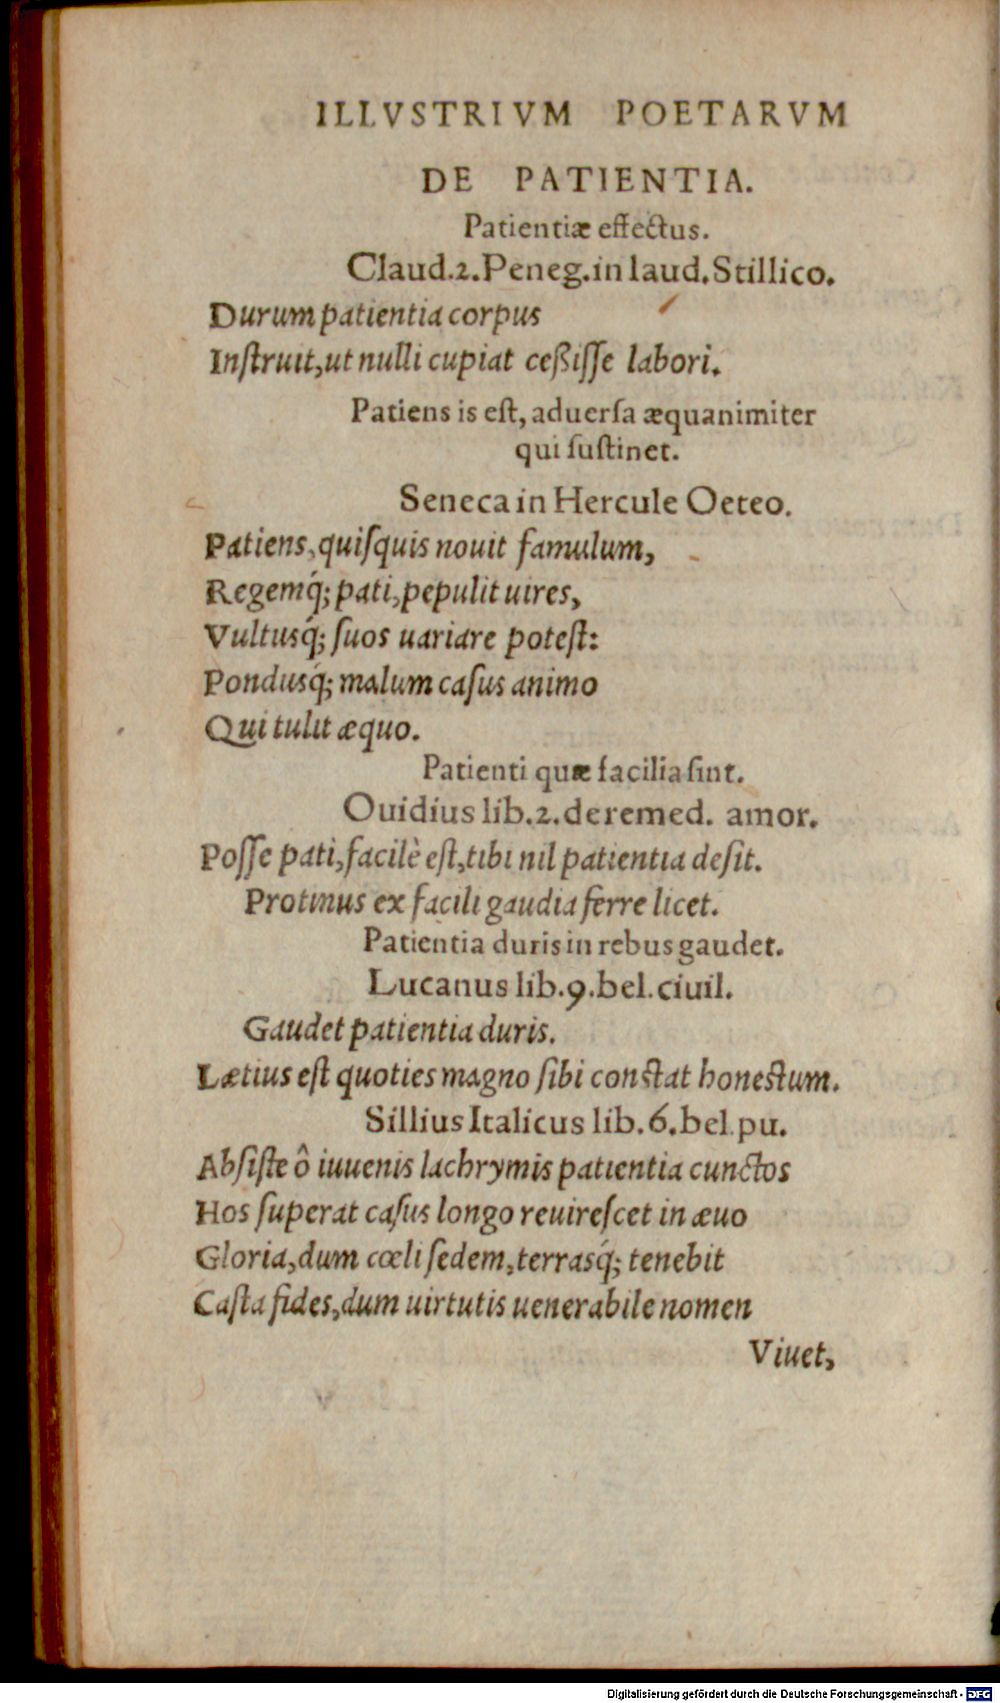 ILLVSTRIVM POETARVM
DE PATIENTIA.
Patientiæ effectus.
Claud.2.Peneg.in laud.Stillico.
Durum patientia corpus
Inſtruit,ut nulli cupiat ceßiſſe labori.
Patiens is eſt, aduerſa æquanimiter
qui ſuſtinet.
Seneca in Hercule Oeteo.
Patiens,quiſquis nouit famulum,
Regemq́; pati,pepulit uires,
Vultusq́; ſuos uariare poteſt:
Pondusq́; malum caſus animo
Qui tulit æquo.
Patienti quæ facilia ſint.
Ouidius lib.2.de remed. amor.
Poſſe pati,facilè eſt,tibi nil patientia deſit.
Protinus ex facili gaudia ferre licet.
Patientia duris in rebus gaudet.
Lucanus lib.9.bel.ciuil.
Gaudet patientia duris.
Lætius eſt quoties magno ſibi conſtat honestum.
Sillius Italicus lib.6.bel.pu.
Abſiſte ô iuuenis lachrymis patientia cunctos
Hos ſuperat caſus longo reuireſcet in æuo
Gloria,dum cœli ſedem,terrasq́; tenebit
Caſta fides,dum uirtutis uenerabile nomen
Viuet,
Digitalisierung gefördert durch die Deutsche Forschungsgemeinschaft - DFG